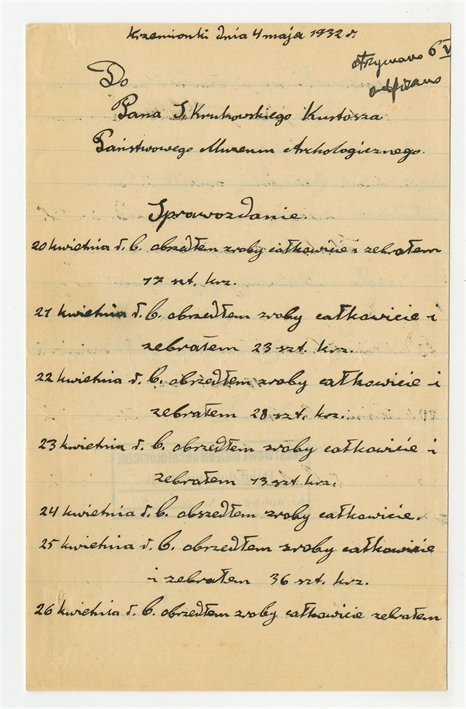 Krzemionki dnia 4 maja 1932 r.
otrzymano 6 V
odpisano
Do
Pana S. Krukowskiego Kustosza
Państwowego Muzeum Archologicznego.
Sprawozdanie.
20 kwietnia d. b. obszedłem zroby całkowicie i zebrałem
17 szt. krz.
21 kwietnia d. b. obszedłem zroby całkowicie i
zebrałem 23 szt. krz.
22 kwietnia d. b. obszedłem zroby całkowicie i
zebrałem 28 szt. krz.
23 kwietnia d. b. obszedłem zroby całkowicie i
zebrałem 13 szt. krz.
24 kwietnia d. b. obszedłem zroby całkowicie.
25 kwietnia d. b. obszedłem zroby całkowicie
i zebrałem 36 szt. krz.
26 kwietnia d. b. obszedłem zroby całkowicie zebrałem